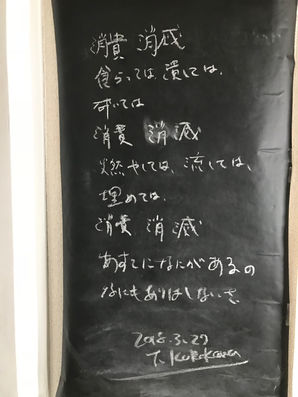 消費 消滅
食らっては、潰しては、
砕いては
消費 消滅
燃やしては、流しては、
埋めては、
消費 消滅
あすこになにがあるの
なにもありはしないさ
2018.3.27
T. Kurokawa